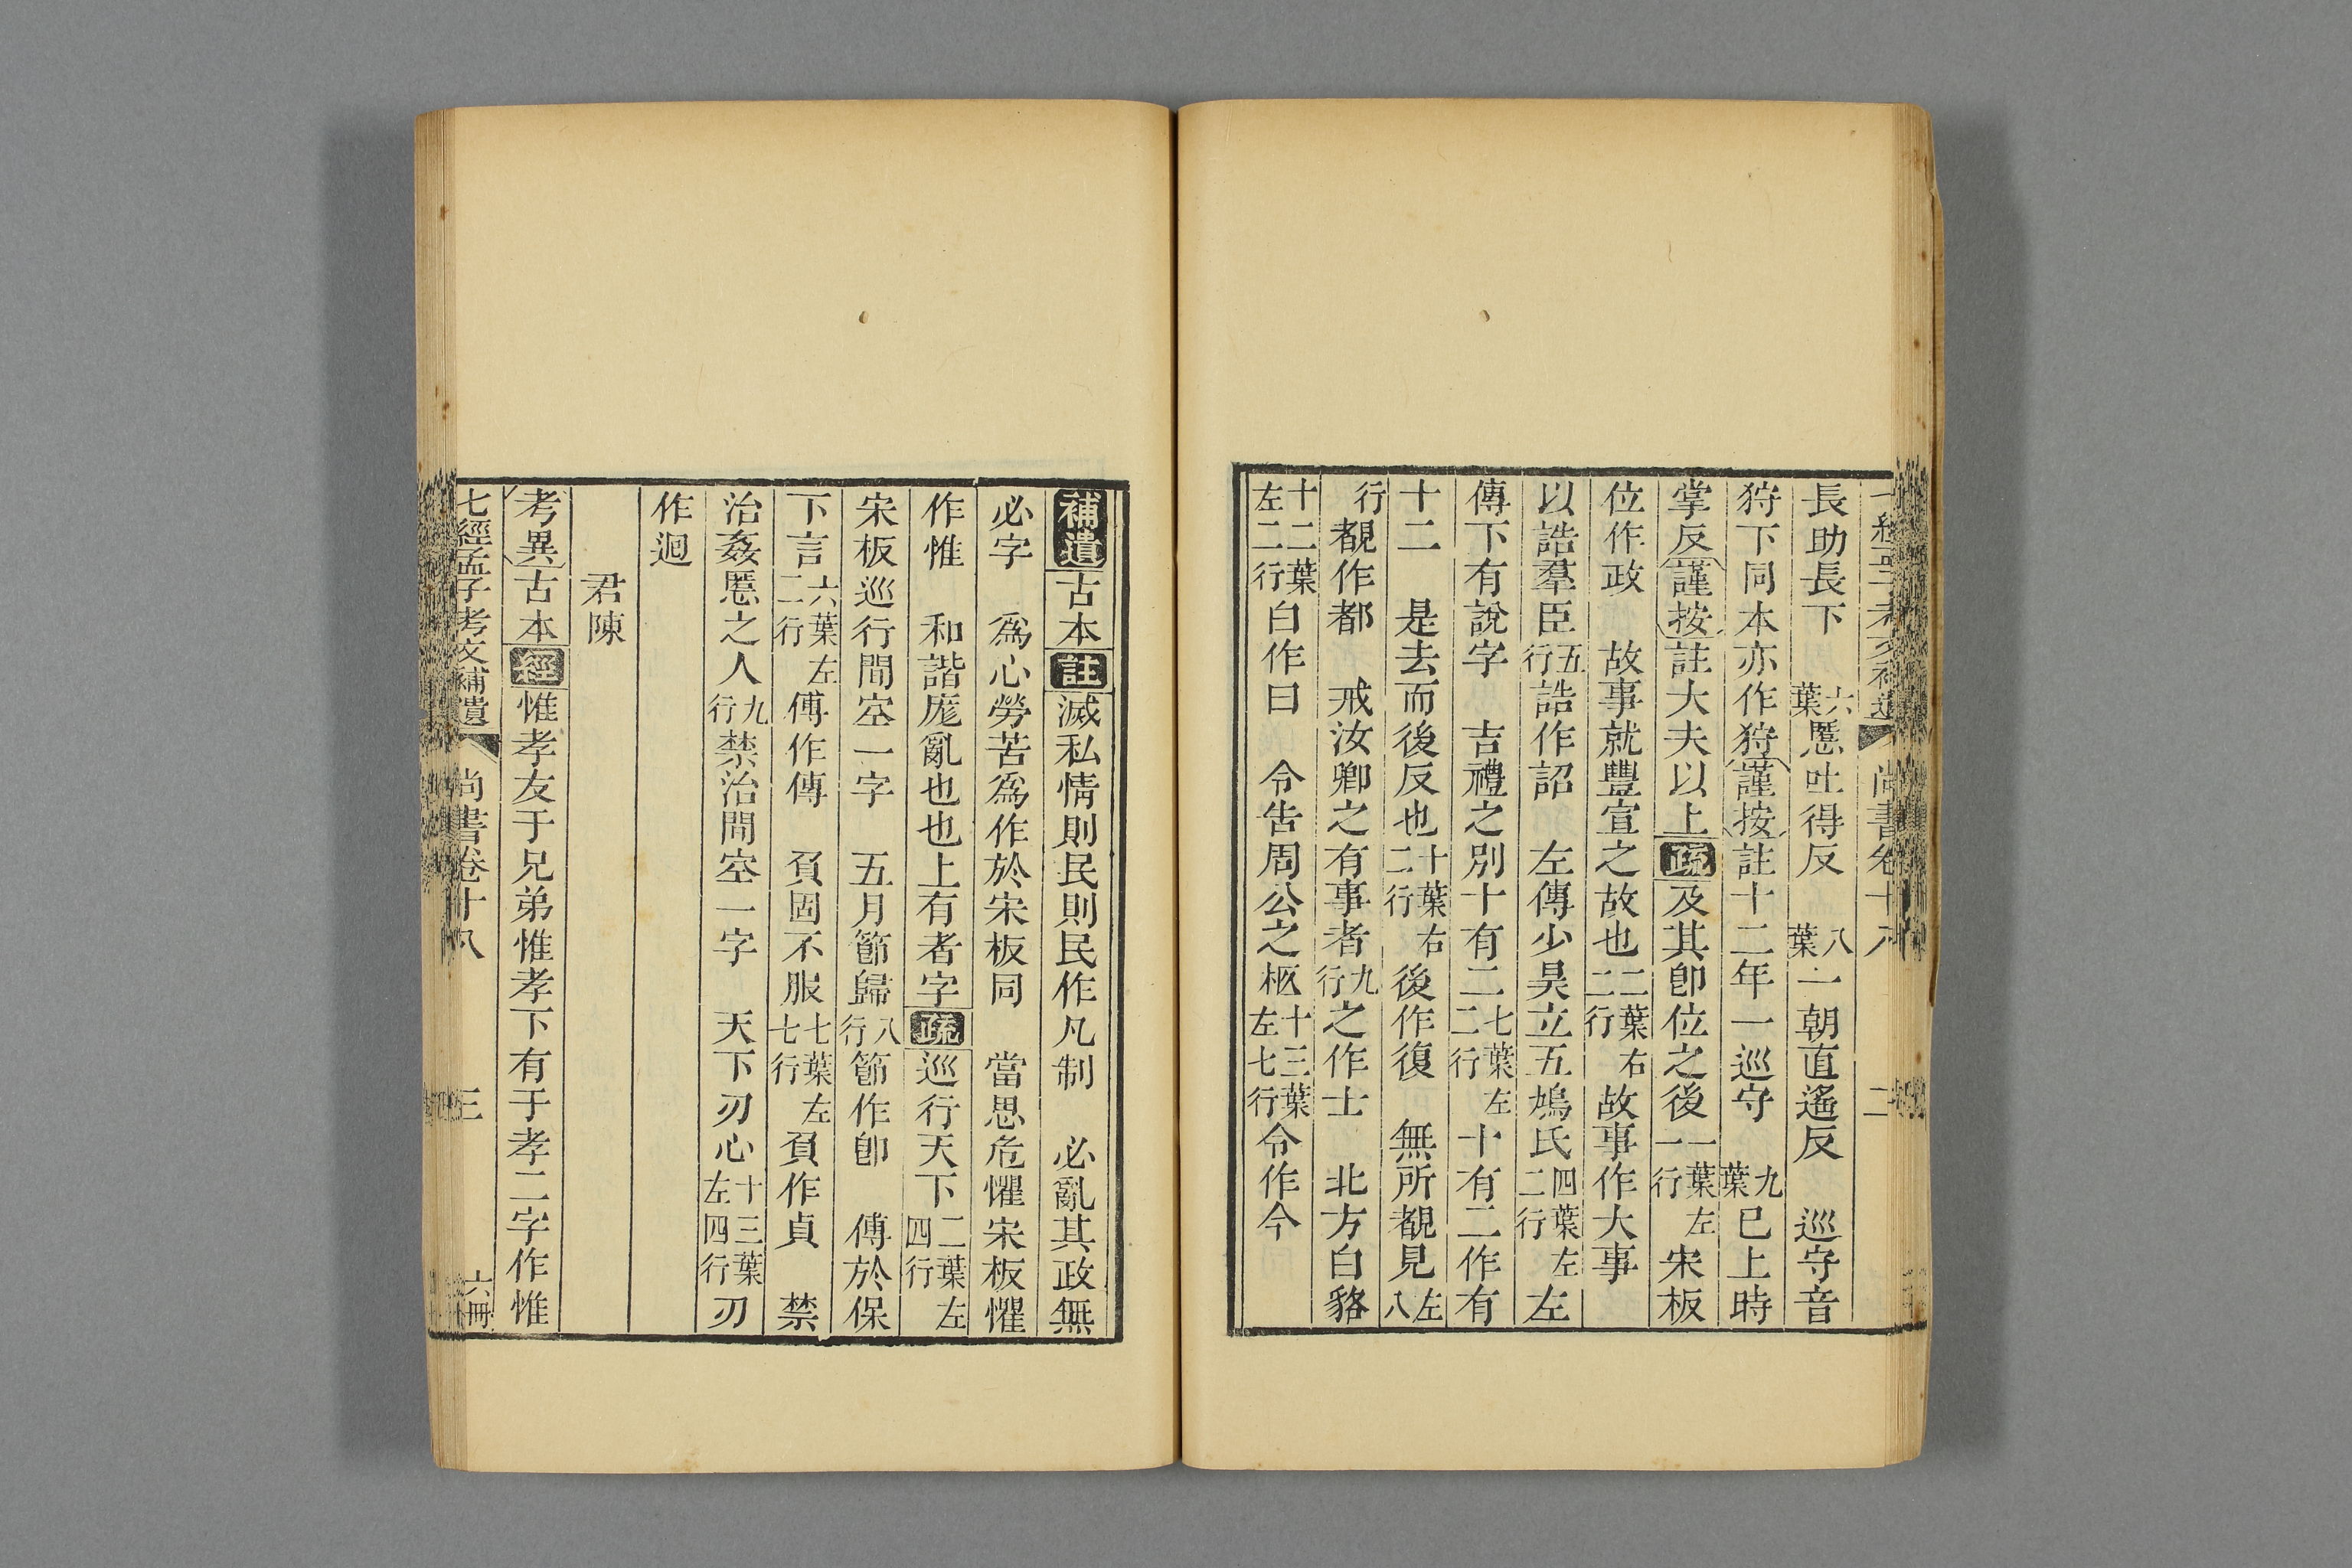 七經孟子考文補遺 尚書卷十八 二
長助長下 六葉 慝吐得反 八葉 一朝直遙反 巡守音
狩下同本亦作狩謹按註十二年一巡守 九葉 已上時
掌反謹按註大夫以上疏及其卽位之後 一葉左一行 宋板
位作政 故事就豐宣之故也 二葉右二行 故事作大事
以誥羣臣 五行 誥作詔 左傳少昊立五鳩氏 四葉左二行 左
傳下有說字 吉禮之別十有二 七葉左二行 十有二作有
十二 是去而後反也 十葉右二行 後作復 無所覩見 左八
行 覩作都 戒汝卿之有事者 九行 之作士 北方白貉
十二葉左二行 白作曰 令告周公之柩 十三葉左七行 令作今
補遺古本註滅私情則民則民作凡制 必亂其政無
必字 爲心勞苦爲作於宋板同 當思危懼宋板懼
作惟 和諧厖亂也也上有者字疏巡行天下 二葉左四行
宋板巡行間空一字 五月節歸 八行 節作卽 傅於保
下言 六葉左二行 傅作傳 負固不服 七葉左七行 負作貞 禁
治姦慝之人 九行 禁治間空一字 天下刃心 十三葉左四行 刃
作迴
君陳
考異古本經惟孝友于兄弟惟孝下有于孝二字作惟
七經孟子考文補遺 尚書卷十八 三 六冊